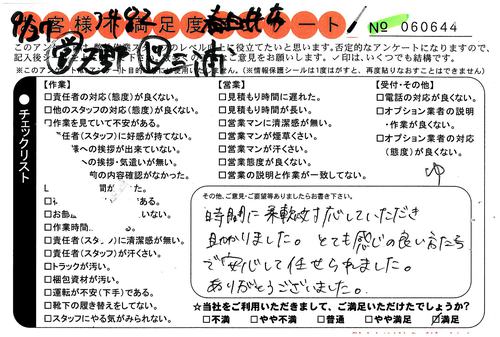 お客様満足度アンケート!
№ 060644
※このアンケートは
(※情報保護シールは1度はがすと、再度貼りなおすことはできません)
チェックリスト
【作業】
□責任者の対応(態度)が良くない。
□他のスタッフの対応(態度)が良くない。
□作業を見ていて不安がある。
責任者(スタッフ)に好感が持てない。
への挨拶が出来ていない。
への挨拶・気遣いが無い。
前の内容確認がなかった。
作業時間
□責任者(スタッフ)に清潔感が無い。
□責任者(スタッフ)が汗くさい。
□トラックが汚い。
□梱包資材が汚い。
□運転が不安(下手)である。
□靴下の履き替えをしてない。
□スタッフにやる気がみられない。
【営業】
□見積もり時間に遅れた。
□見積もり時間が長い。
□営業マンに清潔感が無い。
□営業マンが煙草くさい。
□営業マンが汗くさい。
□営業態度が良くない。
□営業の説明と作業が一致してない。
【受付・その他】
□電話の対応が良くない。
□オプション業者の説明
・作業が良くない。
□オプション業者の対応
(態度)が良くない。
その他、ご意見・ご要望等ありましたらお書き下さい。
時間に柔軟に対応していただき
助かりました。とても感じの良い方たち
で安心して任せられました。
ありがとうございました。
☆当社をご利用いただきまして、ご満足いただけたでしょうか?
□不満 □やや不満 □普通 □やや満足 ☑満足